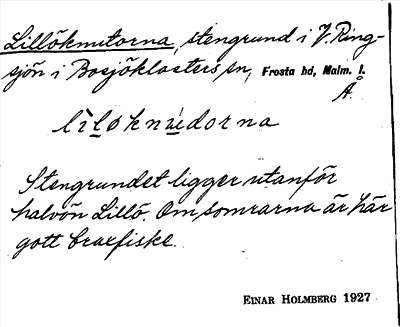 Lillöknutorna, stengrund i V. Ring-
sjön i Bosjöklosters sn, Frosta hd, Malm. l.
Å.
lìløknúdorna
Stengrundet ligger utanför
halvön Lillö. Om somrarna är här
gott braxfiske.
EINAR HOLMBERG 1927